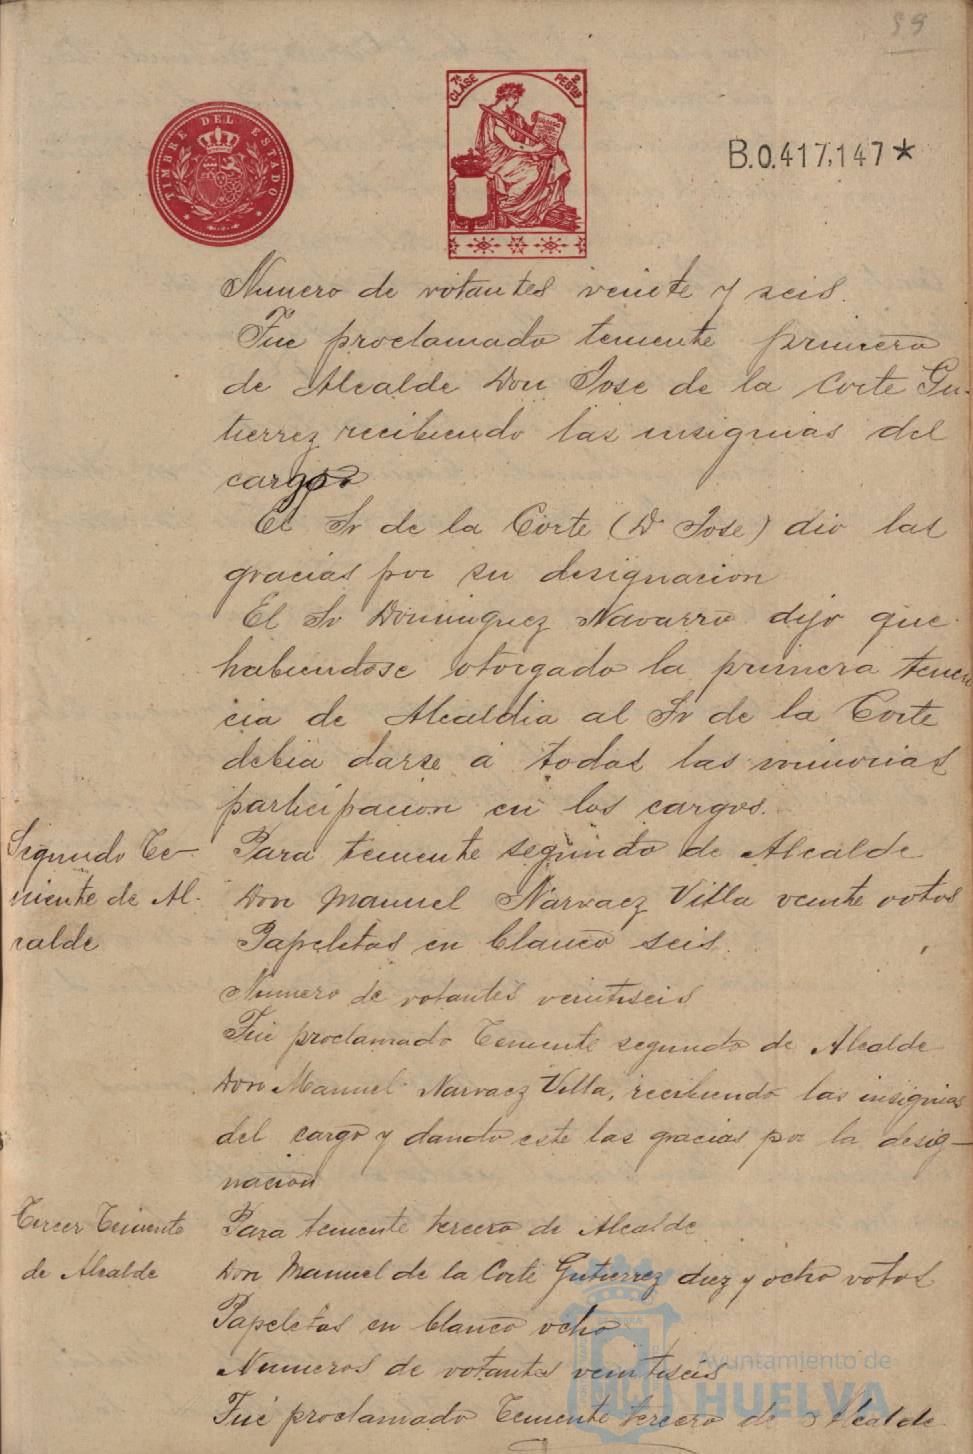 59
TIMBRE DEL ESTADO
7ª CLASE
2 PESTAS
B.0.417,147*
Numero de votantes veinte y seis.
Fue proclamado teniente primero
de Alcalde Don Jose de la Corte Gu-
tierrez recibiendo las insignias del
cargo
El Sr de la Corte (D. Jose) dio las
gracias por su designacion
El Sr Dominguez Navarro dijo que
habiendose otorgado la primera tenen
cia de Alcaldia al Sr de la Corte
debia darse á todas las minorias
participacion en los cargos.
Segundo Te-
niente de Al-
calde
Para teniente segundo de Alcalde
Don Manuel Narvaez Villa veinte votos
Papeletas en blanco seis.
Numero de votantes veintiseis
Fué proclamado Teniente segundo de Alcalde
Don Manuel Narvaez Villa, recibiendo las insignias
del cargo y dando este las gracias por la desig-
nacion
Tercer Teniente
de Alcalde
Para teniente tercero de Alcalde
Don Manuel de la Corte Gutierrez diez y ocho votos
Papeletas en blanco ocho
Numeros de votantes veintiseis
Fué proclamado Teniente tercero de Alcalde
Ayuntamiento de
HUELVA